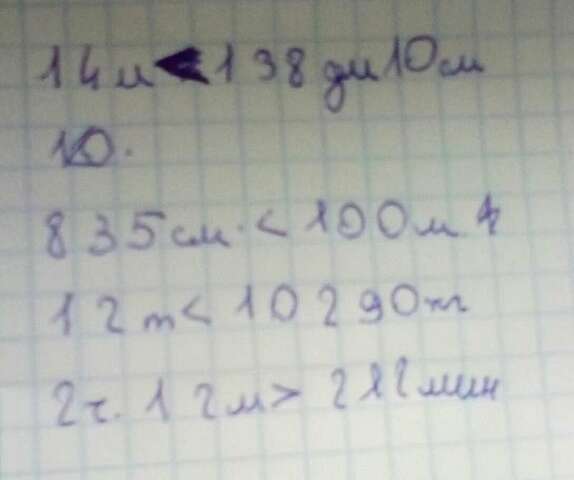 14м < 138 дм 10 см
10.
835 см. < 100 м
12 т < 10290 кг
2 ч. 12 м > 212 мин